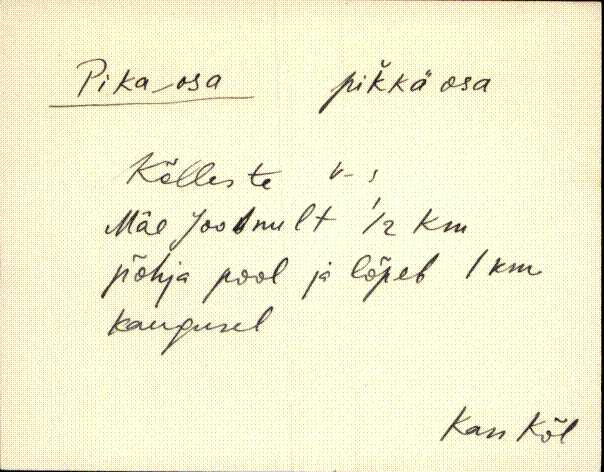 Pika-osa pikkä osa
Kõlleste v-s
Mäe Joosnult 1/2 km
põhja pool ja lõpeb 1 km
kaugusel
Kan Kõl